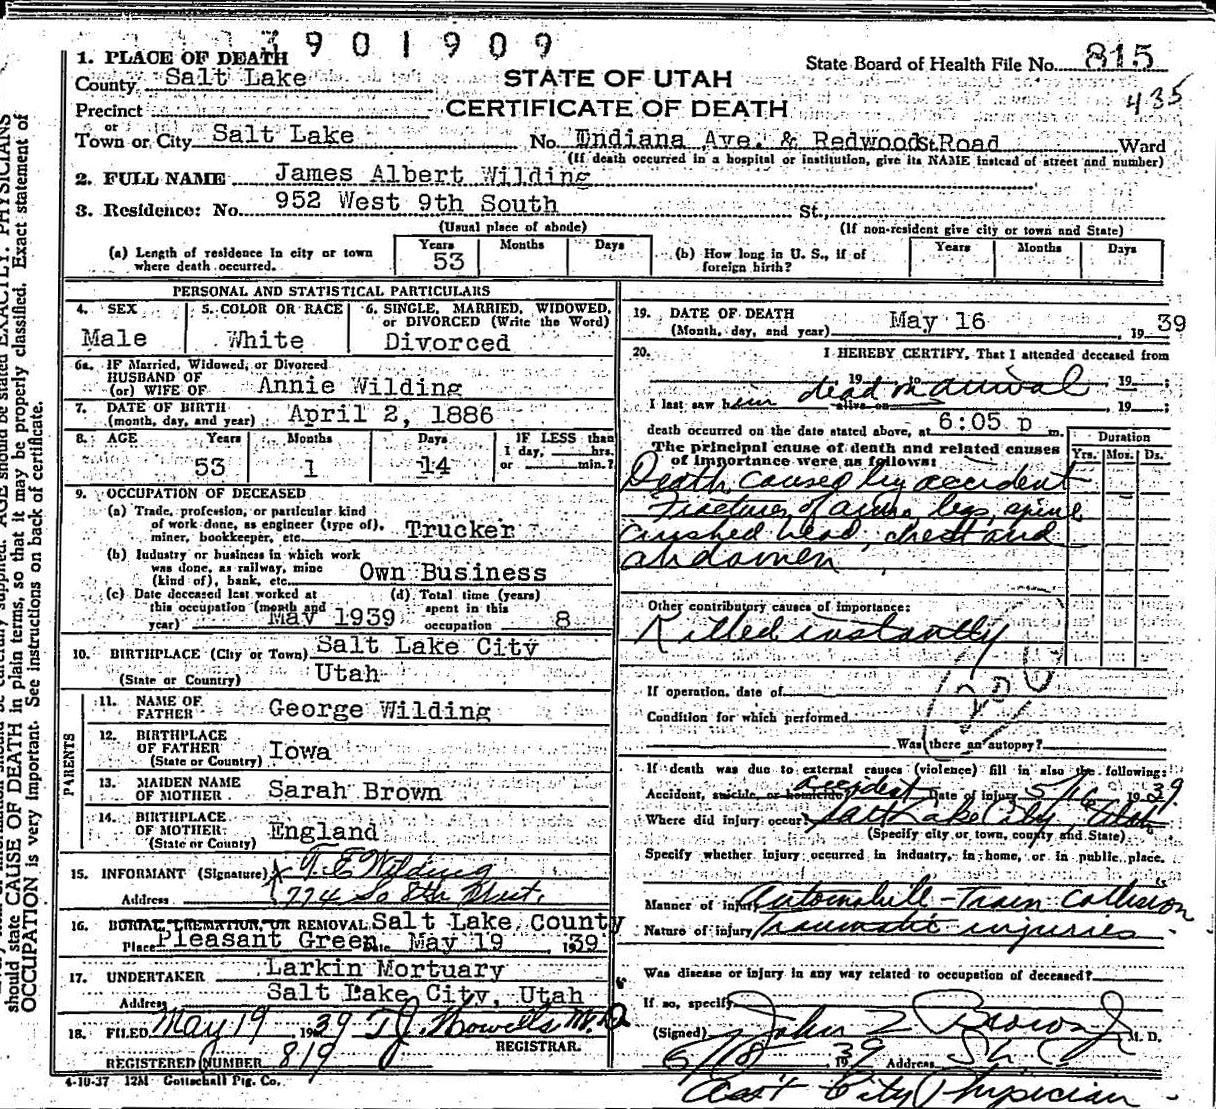 3901909
1. PLACE OF DEATH
County Salt Lake
STATE OF UTAH
State Board of Health File No. 815
Precinct
CERTIFICATE OF DEATH
435
Town or City Salt Lake No. Indiana Ave. & Redwood St. Road Ward
(If death occurred in a hospital or institution, give its NAME instead of street and number)
2. FULL NAME James Albert Wilding
3. Residence: No. 952 West 9th South St.,
(Usual place of abode) (If non-resident give city or town and State)
(a) Length of residence in city or town where death occurred. Years 53 Months Days
(b) How long in U. S., if of foreign birth? Years Months Days
PERSONAL AND STATISTICAL PARTICULARS
4. SEX Male
5. COLOR OR RACE White
6. SINGLE, MARRIED, WIDOWED, or DIVORCED (Write the Word) Divorced
6a. IF Married, Widowed, or Divorced
HUSBAND OF
(or) WIFE OF Annie Wilding
7. DATE OF BIRTH
(month, day, and year) April 2, 1886
8. AGE Years 53 Months 1 Days 14 IF LESS than 1 day, hrs. or min.?
9. OCCUPATION OF DECEASED
(a) Trade, profession, or particular kind
of work done, as engineer (type of),
miner, bookkeeper, etc. Trucker
(b) Industry or business in which work
was done, as railway, mine
(kind of), bank, etc. Own Business
(c) Date deceased last worked at
this occupation (month and
year) May 1939
(d) Total time (years)
spent in this
occupation 8
10. BIRTHPLACE (City or Town) Salt Lake City
(State or Country) Utah
PARENTS
11. NAME OF
FATHER George Wilding
12. BIRTHPLACE
OF FATHER
(State or Country) Iowa
13. MAIDEN NAME
OF MOTHER Sarah Brown
14. BIRTHPLACE
OF MOTHER
(State or Country) England
15. INFORMANT (Signature) Wilding
Address 774 So 8th West.
16. BURIAL, CREMATION, OR REMOVAL Salt Lake County
Place Pleasant Green Date May 19 1939
17. UNDERTAKER Larkin Mortuary
Address Salt Lake City, Utah
18. FILED May 19 1939 T J Howells M.D
REGISTRAR.
REGISTERED NUMBER 819
4-10-37 12M Gottschall Ptg. Co.
19. DATE OF DEATH
(Month, day, and year) May 16 1939
20. I HEREBY CERTIFY, That I attended deceased from
19 to 19
I last saw him alive on dead on arrival, 19
death occurred on the date stated above, at 6:05 p m.
The principal cause of death and related causes
of importance were as follows:
Duration
Yrs. Mos. Ds.
Death caused by accident
Fractures of arms, legs, spine
crushed head, chest and
abdomen
Other contributory causes of importance:
Killed instantly
If operation, date of
Condition for which performed
Was there an autopsy?
If death was due to external causes (violence) fill in also the following:
Accident, suicide, or homicide accident Date of injury 5/16 1939
Where did injury occur? Salt Lake City, Utah
(Specify city or town, county, and State)
Specify whether injury occurred in industry, in home, or in public place.
Manner of injury Automobile - Train Collision
Nature of injury Traumatic injuries
Was disease or injury in any way related to occupation of deceased?
If so, specify
(Signed) John Z Brown Jr M. D.
5/18 1939 Address S L C
Ass't City Physician
AGE should be stated EXACTLY. PHYSICIANS
should state CAUSE OF DEATH in plain terms, so that it may be properly classified. Exact statement of
OCCUPATION is very important. See instructions on back of certificate.